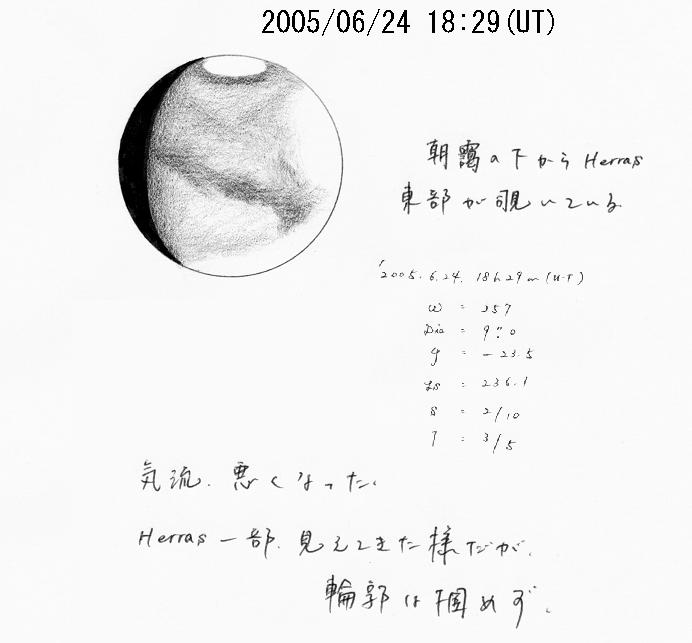 2005/06/24 18:29(UT)
朝靄の下から Herras
東部が覗いている
'2005.6.24. 18h29m(UT)
ω = 257
Dia = 9".0
φ = -23.5
Ls = 236.1
S = 2/10
T = 3/5
気流、悪くなった。
Herras 一部、見えてきた様だが、
輪郭は掴めず。